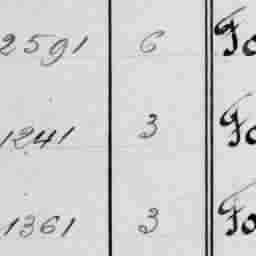 2591 6 Fo
1241 3 Fo
1361 3 Fo